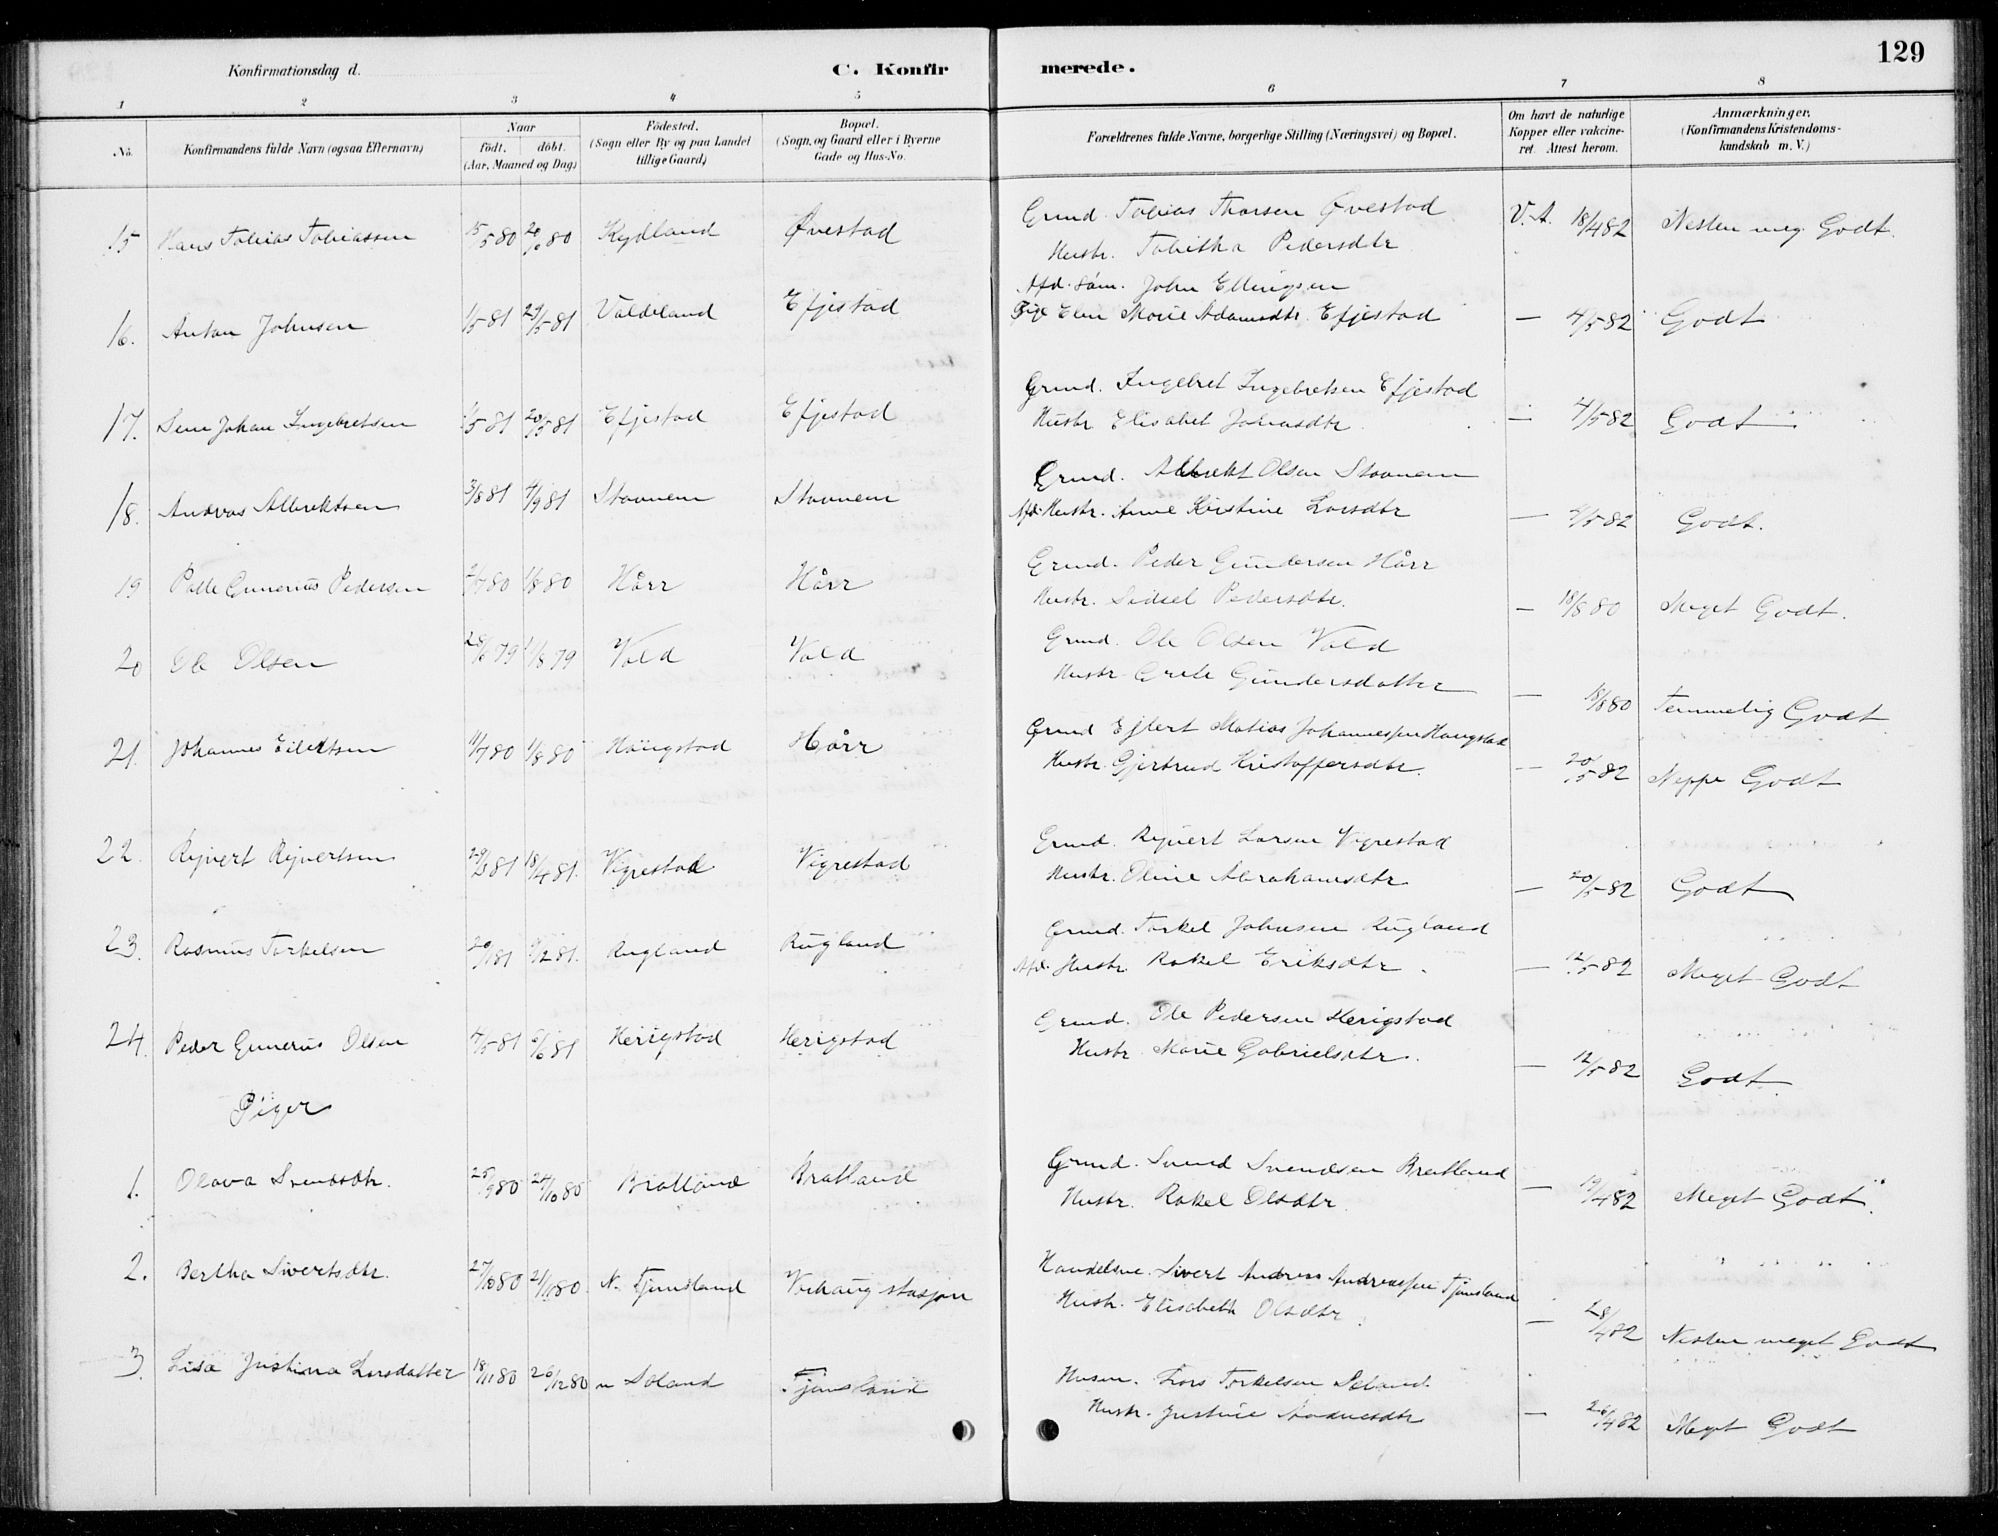 129
Konfirmationsdag d. C. Konfirmerede.
1 2 3 4 5 6 7 8
No. Konfirmandens fulde Navn (ogsaa Efternavn) Naar født. døbt. (Aar, Maaned og Dag) Fødested. (Sogn eller By og paa Landet tillige Gaard) Bopæl. (Sogn og Gaard eller i Byerne Gade og Hus-No. Forældrenes fulde Navne, borgerlige Stilling (Næringsvei) og Bopæl. Om havt de naturlige Kopper eller vakcineret. Attest herom. Anmærkninger. (Konfirmandens Kristendomskundskab m. V.)
15 Hans Tobias Tobiassen 15/5 80 20/6 80 Kydland Øvestad Grmd. Tobias Thorsen Øvestad V.A. 18/4 82 Nesten meg. Godt.
Hustr. Tabitha Pedersdtr
16. Antan Johnsen 1/5 81 29/5 81 Valdeland Efjestad Afd. Søm. John Ellingsen
Pige Elen Marie Adamsdtr. Efjestad — 4/5 82 Godt
17. Sem Johan Ingebretsen /5 81 20/5 81 Efjestad Efjestad Grmd. Ingebret Ingebretsen Efjestad
Hustr Elisabet Johnsdtr. — 4/5 82 Godt
18. Andreas Albrektsen 3/8 81 4/9 81 Stavnem Stavnem Grmd. Albrekt Olsen Stavnem
Afd. Hustr. Anne Kristine Larsdtr — 4/5 82 Godt.
19 Palle Gunerius Pedersen 2/7 80 1/8 80 Hårr Hårr Grmd. Peder Gundersen Hårr
Hustr. Sidsel Pedersdtr. — 18/8 80 Meget Godt.
20 Ole Olsen 28/6 79 1/8 79 Vold Vold Grmd. Ole Olsen Vold
Hustr Grete Gundersdatter — 18/8 80 Temmelig Godt
21. Johannes Eilertsen 11/7 80 1/8 80 Haugstad Hårr Grmd Ejlert Matias Johannessen Haugstad
Hustr. Gjertrud Kristoffersdtr. — 20/5 82 Neppe Godt
22. Rejvert Rejvertsen 29/3 81 18/4 81. Vigrestad Vigrestad Grmd. Rejvert Larsen Vigrestad
Hustr. Oline Abrahamsdtr — 20/5 82 Godt
23. Rasmus Torkelsen 20/1 81 /2 81. Rugland Rugland Grmd. Torkel Johnsen Rugland
Afd. Hustr. Rakel Eriksdtr. — 12/5 82 Meget Godt
24. Peder Gunerius Olsen 4/5 81 6/6 81 Herigstad Herigstad Grmd. Ole Pedersen Herigstad
Hustr. Marie Gabrielsdtr. — 12/5 82 Godt
Piger
1. Olava Svendsdtr. 25/9 80 24/10 80 Bratland Bratland Grmd. Svend Svendsen Bratland
Hustr. Rakel Olsdtr. — 19/4 82 Meget Godt.
2. Bertha Sivertsdtr. 27/10 80 21/11 80. N. Tjensland Varhaug stasjon Handelsm. Sivert Andreas Andreassen Tjensland
Hustr. Elisabeth Olsdtr. — 28/4 82 Nesten meget Godt
3. Lise Justina Larsdatter 18/11 80 26/12 80 n Soland Tjensland Husm. Lars Torkelsen Soland.
Hustr. Justine Aadnesdtr — 26/4 82 Meget Godt